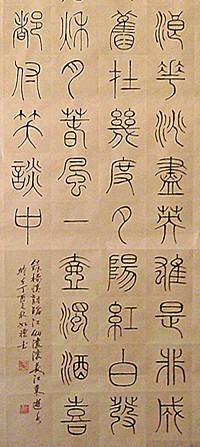 浪花淘盡英雄是非成
舊在幾度夕陽紅白髮
秋月春風一壺濁酒喜
都付笑談中
錄楊慎詞臨江仙滾滾長江東逝水